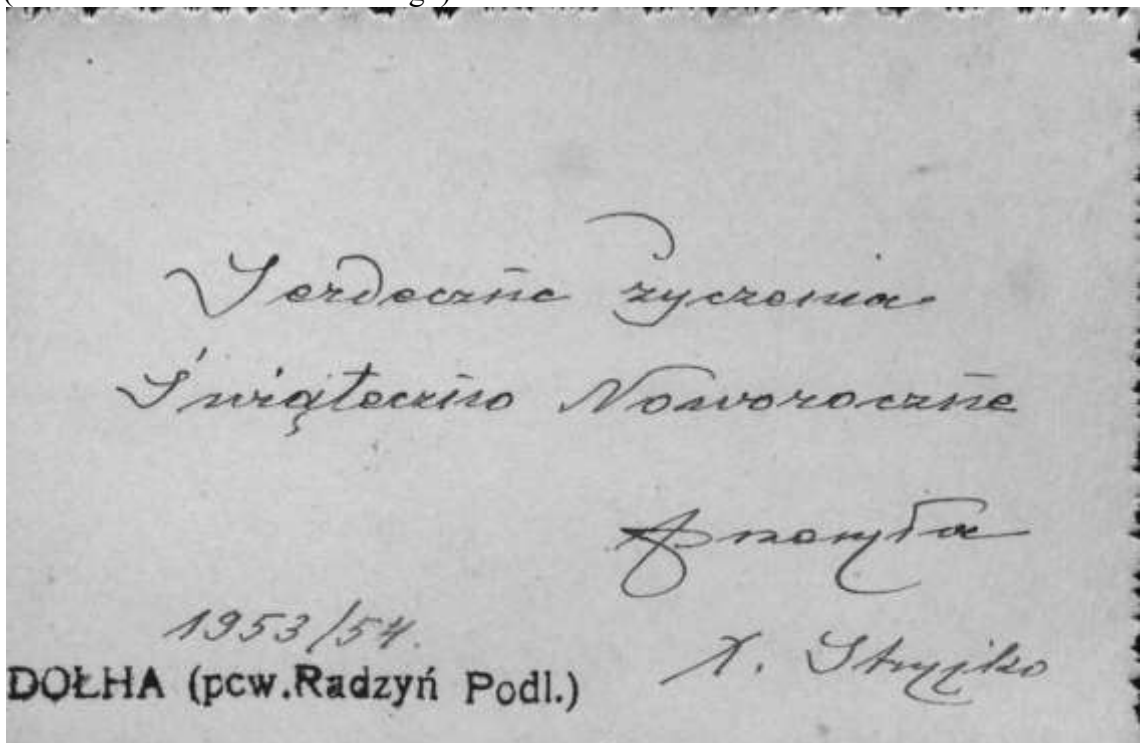 Serdeczne życzenia
Świąteczno Noworoczne
1953/54.
X. Stryjko
DOŁHA (pcw.Radzyń Podl.)